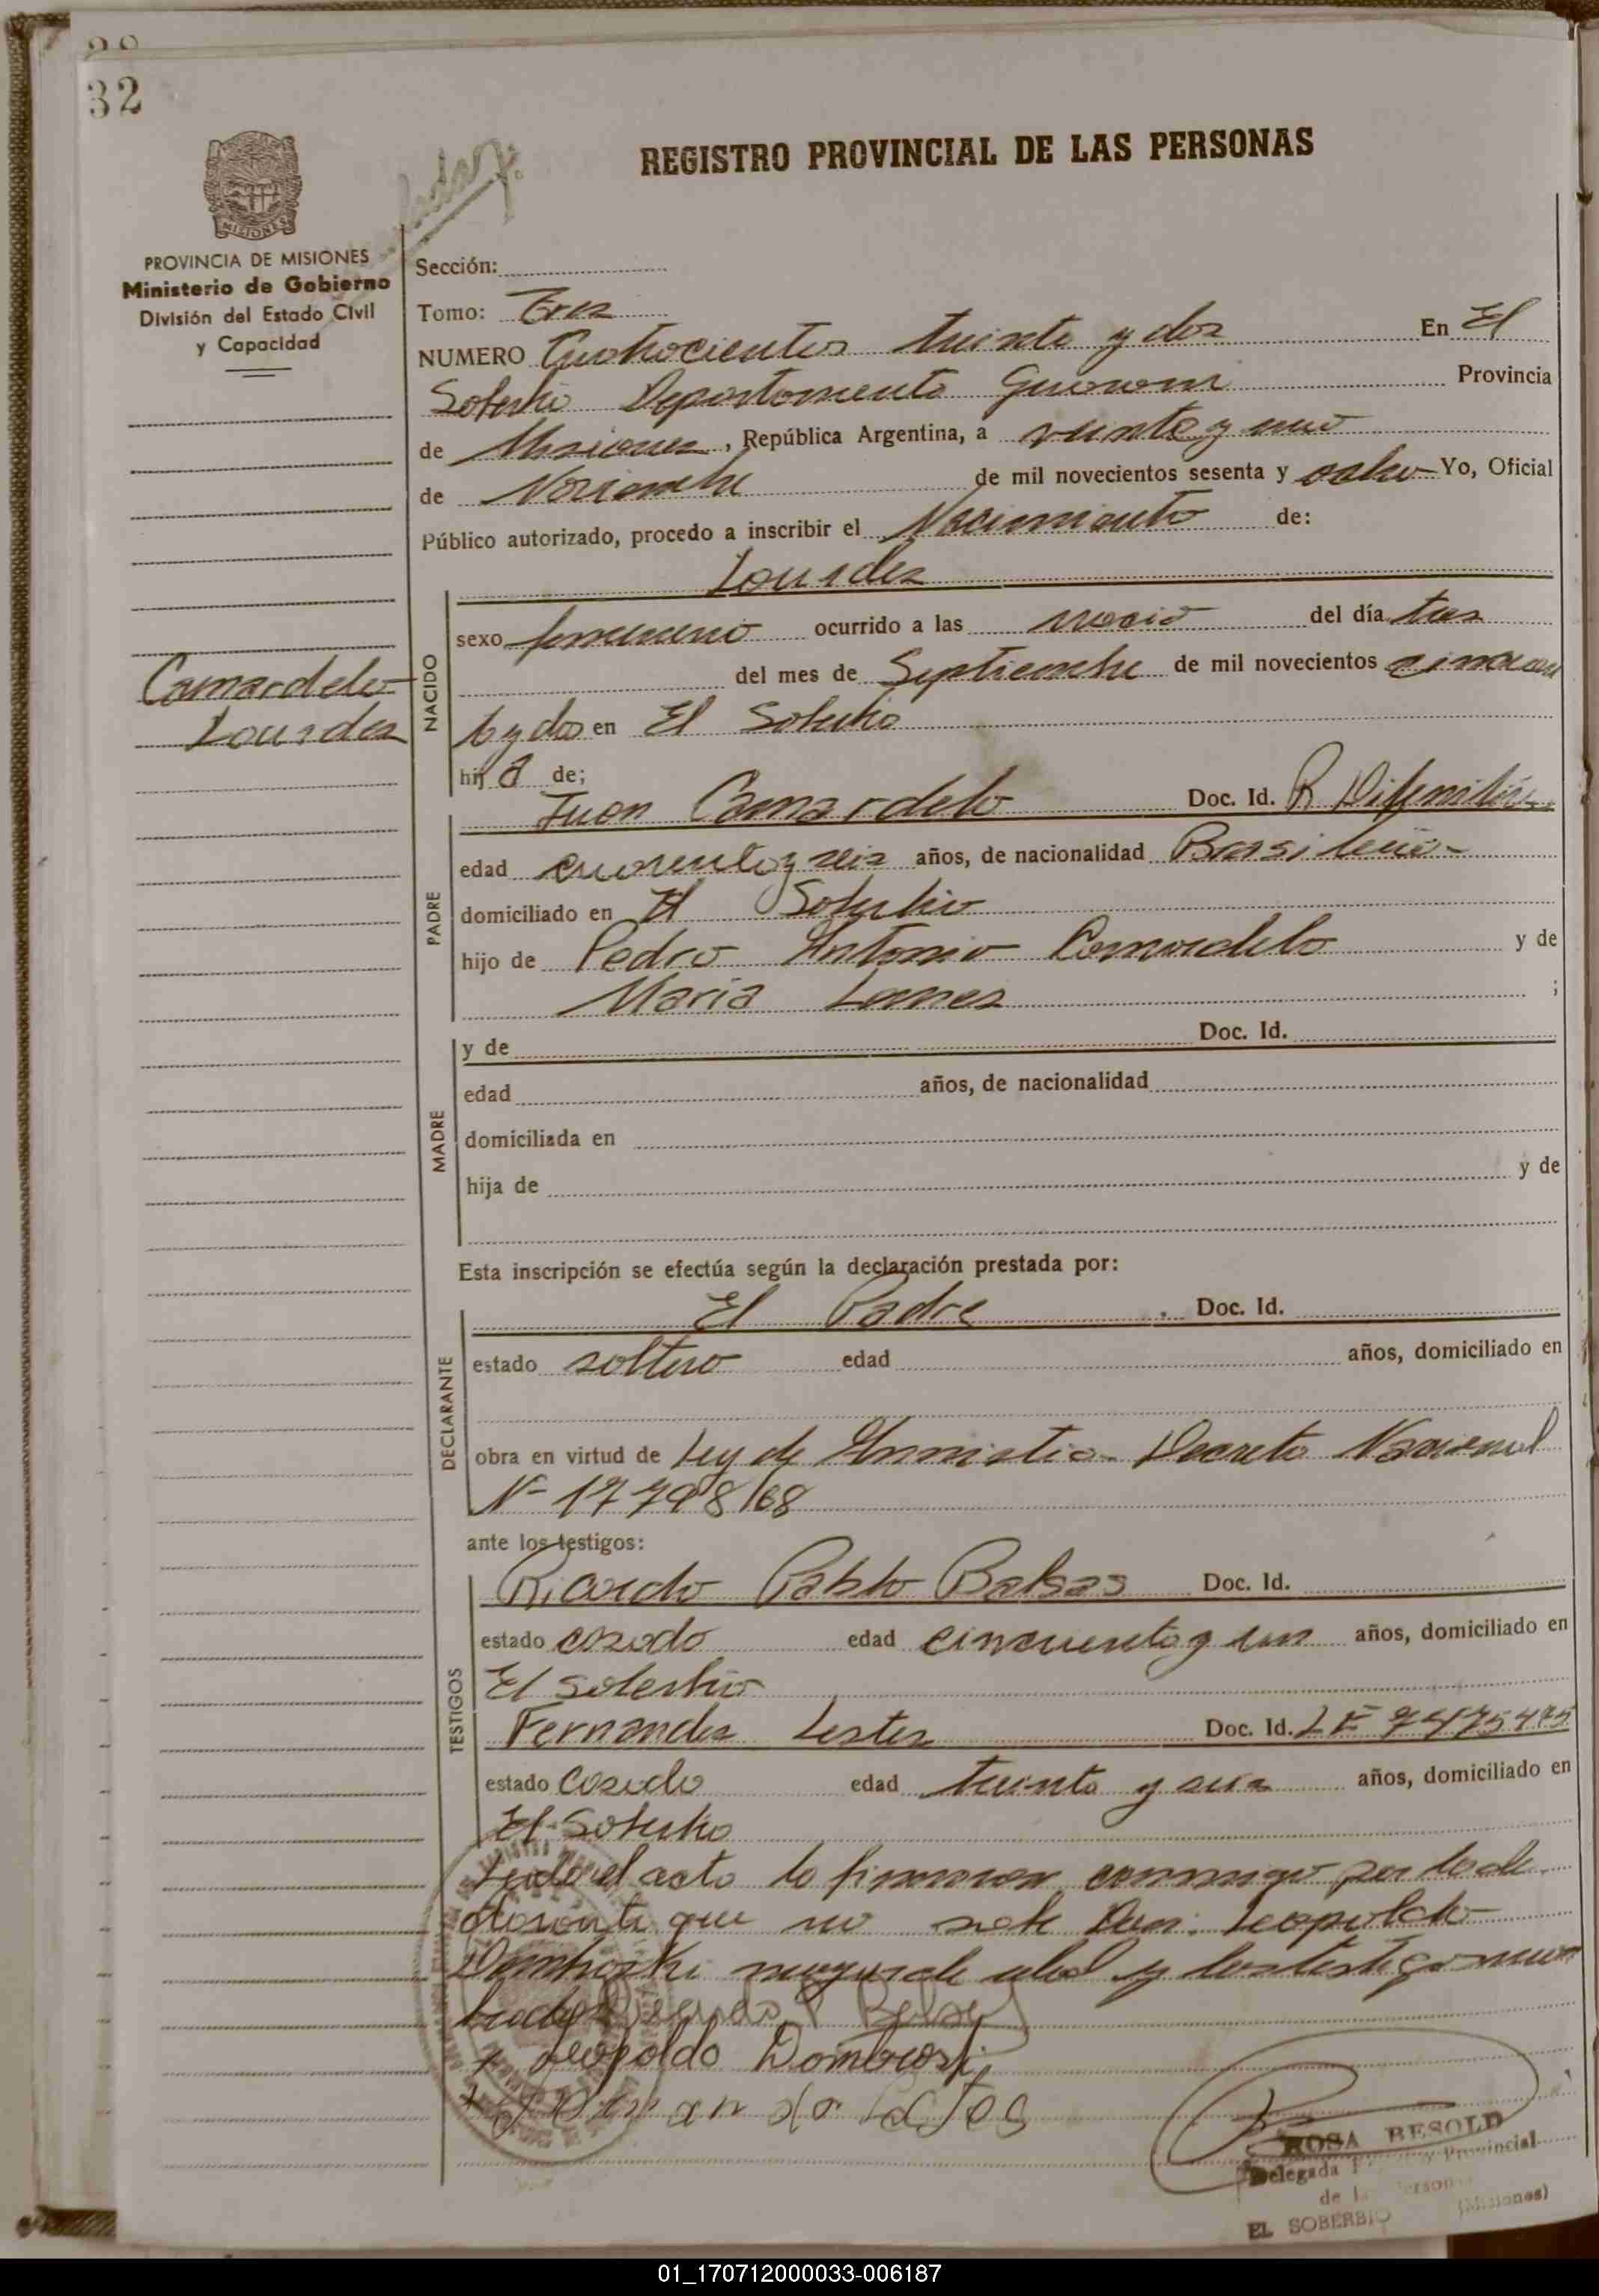 32
REGISTRO PROVINCIAL DE LAS PERSONAS
MISIONES
PROVINCIA DE MISIONES
Ministerio de Gobierno
División del Estado Civil
y Capacidad
Sección:
Tomo: Tres
NUMERO Cuatrocientos treinta y dos En El
Soberbio Departamento Guarani Provincia
de Misiones, República Argentina, a veinte y uno
de Noviembre de mil novecientos sesenta y ocho Yo, Oficial
Público autorizado, procedo a inscribir el Nacimiento de:
Lourdes
Camardelo
Lourdes
NACIDO
sexo femenino ocurrido a las nació del día tres
del mes de Septiembre de mil novecientos cincuen
ta y dos en El Soberbio
hija de;
PADRE
Juan Camardelo Doc. Id. R
edad cuarenta y seis años, de nacionalidad Brasileño
domiciliado en El Soberbio
hijo de Pedro Antonio Camardelo y de
Maria ;
MADRE
y de Doc. Id.
edad años, de nacionalidad
domiciliada en
hija de y de
Esta inscripción se efectúa según la declaración prestada por:
DECLARANTE
El Padre . Doc. Id.
estado soltero edad años, domiciliado en
obra en virtud de Ley de Amnistia Decreto Nacional
Nº 17798/68
ante los testigos:
TESTIGOS
Ricardo Pablo Balsas Doc. Id.
estado casado edad cincuenta y un años, domiciliado en
El Soberbio
Fernandes Lestes Doc. Id. LE 7475475
estado casado edad treinta y seis años, domiciliado en
El Soberbio
Leido el acto lo firman conmigo por lo de
clarante que no sabe Leopoldo
mayor de edad y los testigos nom
brados
Leopoldo Dombroski
ROSA BESOLD
Delegada Provincial
de las Personas
EL SOBERBIO (Misiones)
01_170712000033-006187